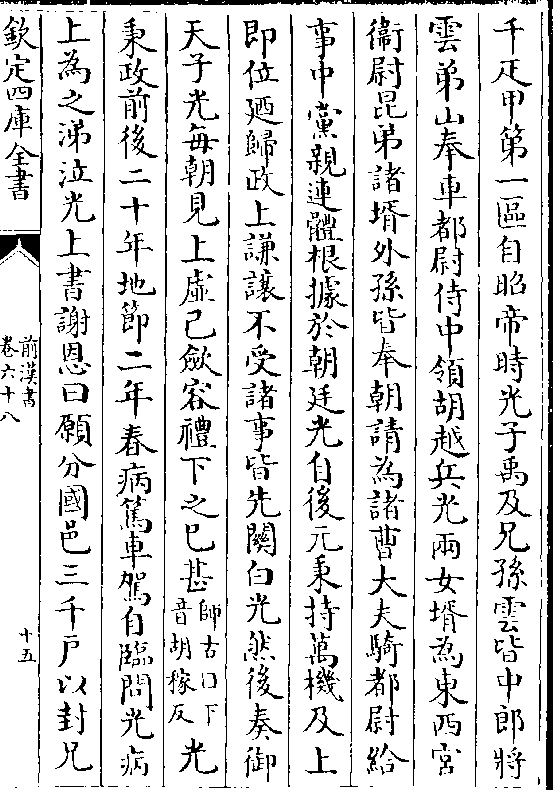 千疋甲第一區自昭帝時光子禹及兄孫雲皆中郎將
雲弟山奉車都尉侍中領胡越兵光兩女壻為東西宮
衞尉昆弟諸壻外孫皆奉朝請為諸曹大夫騎都尉給
事中黨親連體根據於朝廷光自後元秉持萬機及上
即位廼歸政上謙讓不受諸事皆先關白光然後奏御
天子光每朝見上虛己歛容禮下之已甚師古曰下音胡稼反光
秉政前後二十年地節二年春病篤車駕自臨問光病
上為之涕泣光上書謝恩曰願分國邑三千戸以封兄
欽定四庫全書
前漢書
卷六十八
十五